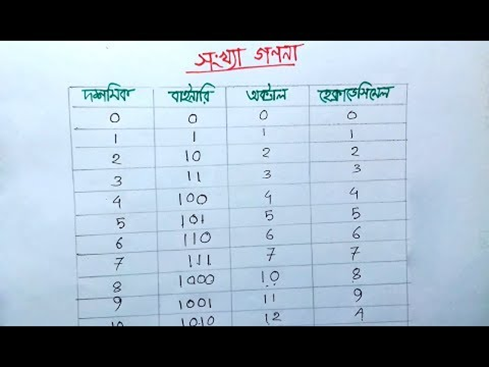 সংখ্যা গননা
দশমিক বাইনারি অক্টাল হেক্সাডেসিমেল
0 0 0 0
1 1 1 1
2 10 2 2
3 11 3 3
4 100 4 4
5 101 5 5
6 110 6 6
7 111 7 7
8 1000 10 8
9 1001 11 9
10 1010 12 A